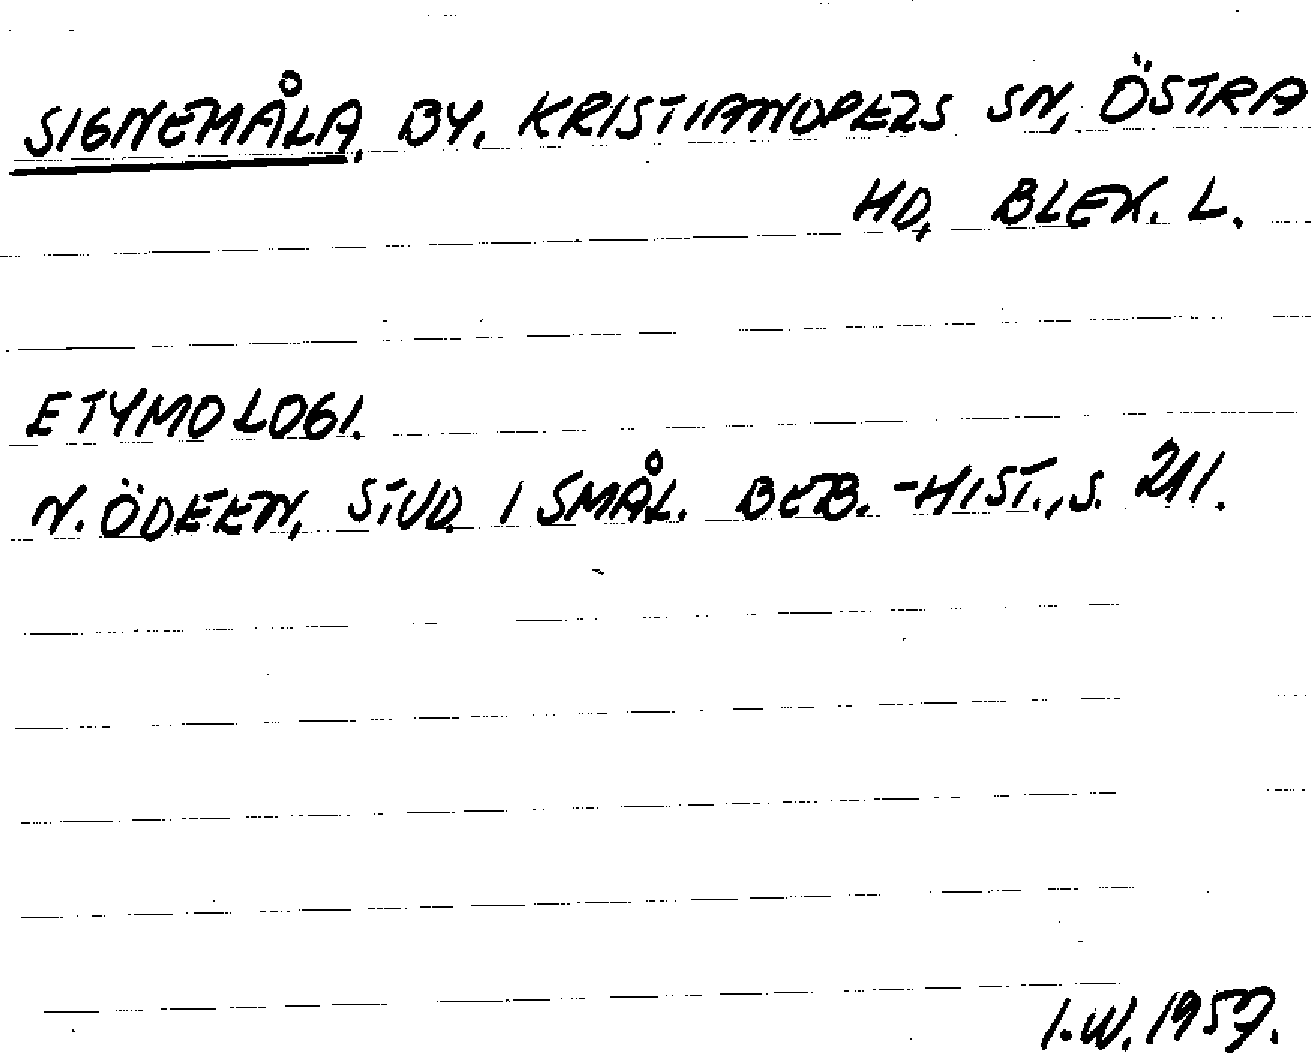 SIGNEMÅLA, BY, KRISTIANOPELS SN, ÖSTRA
HD, BLEK. L.
ETYMOLOGI.
N. ÖDEEN, STUD. I SMÅL. BEB.-HIST., S. 211.
I.W. 1957.